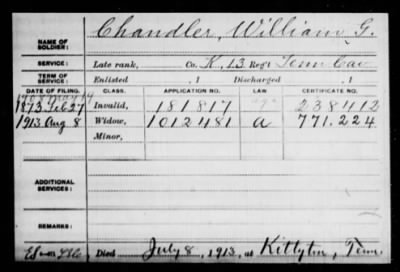 NAME OF SOLDIER: Chandler, William G.
SERVICE: Late rank, Co. K, 13 Reg't Tenn Cav
TERM OF SERVICE: Enlisted , 1 Discharged , 1
DATE OF FILING. CLASS. APPLICATION NO. LAW CERTIFICATE NO.
1873 Feb 27 Invalid, 181817 238412
1913 Aug 8 Widow, 1012481 a 771.224
Minor,
ADDITIONAL SERVICES:
REMARKS:
Died July 8, 1913, at Kittyton, Tenn.